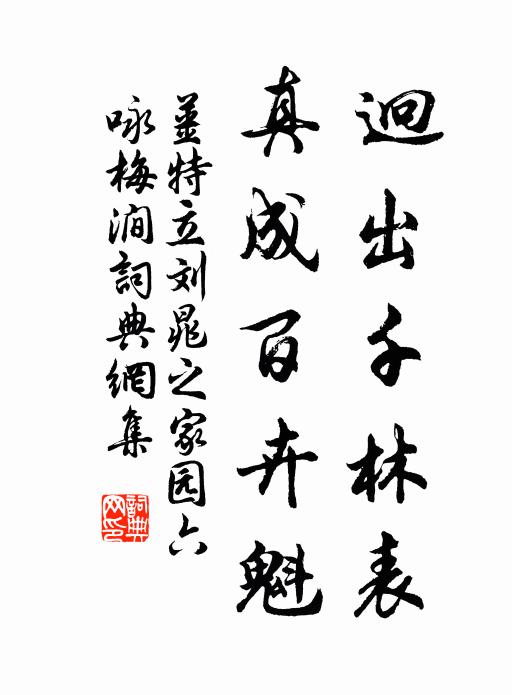 迥出千林表
真成百卉魁
姜特立刘晁之家园六
咏梅涧詞典網集
詞典网印